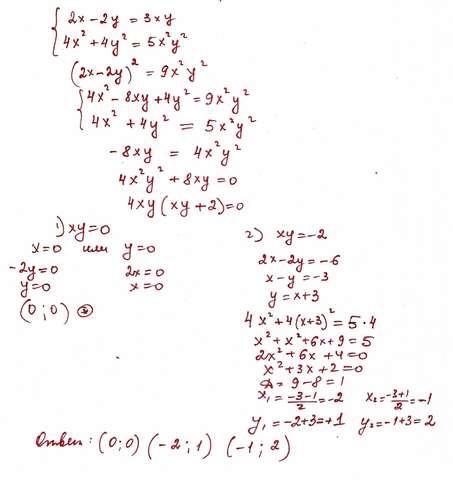 { 2x - 2y = 3xy
4x² + 4y² = 5x²y²
(2x-2y)² = 9x²y²
{ 4x² - 8xy + 4y² = 9x²y²
4x² + 4y² = 5x²y²
-8xy = 4x²y²
4x²y² + 8xy = 0
4xy(xy+2)=0
1) xy=0
x=0 или y=0
-2y=0 2x=0
y=0 x=0
(0;0)
2) xy=-2
2x-2y=-6
x-y=-3
y=x+3
4x²+4(x+3)²=5·4
x²+x²+6x+9=5
2x²+6x+4=0
x²+3x+2=0
D=9-8=1
x₁=(-3-1)/2=-2 x₂=(-3+1)/2=-1
y₁=-2+3=+1 y₂=-1+3=2
Ответ: (0;0) (-2;1) (-1;2)